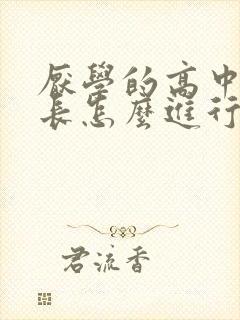 厭學的高中
長怎麼進行
君流香